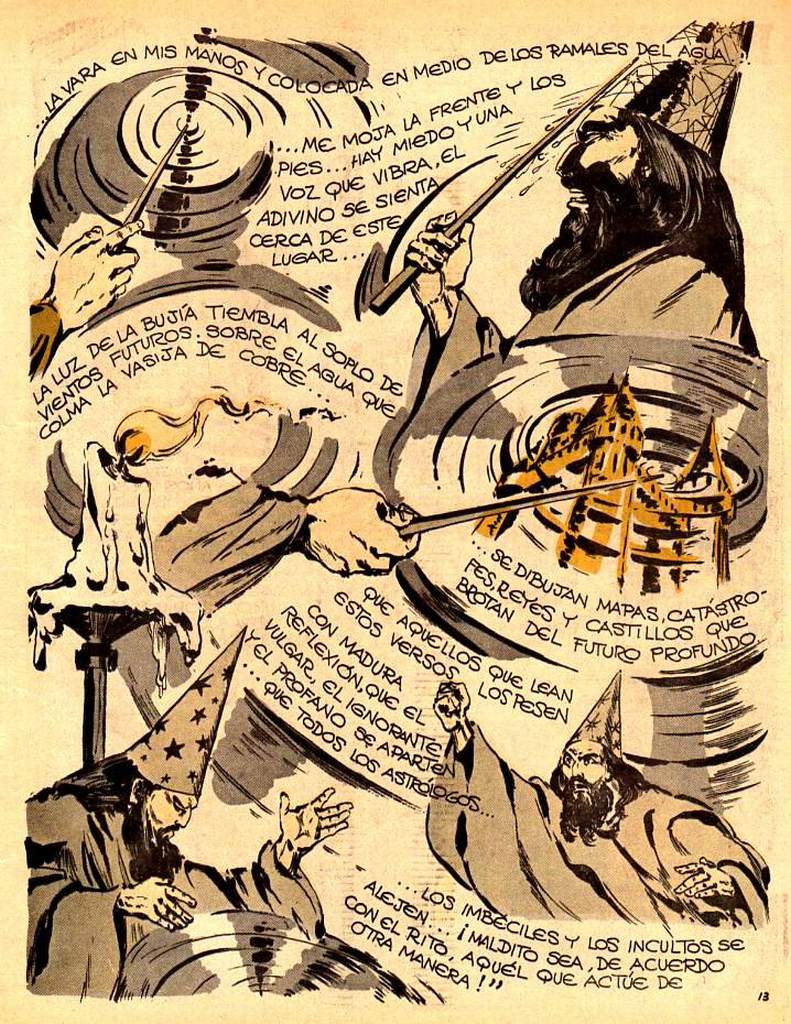 ...LA VARA EN MIS MANOS Y COLOCADA EN MEDIO DE LOS RAMALES DEL AGUA
...ME MOJA LA FRENTE Y LOS
PIES... HAY MIEDO Y UNA
VOZ QUE VIBRA, EL
ADIVINO SE SIENTA
CERCA DE ESTE
LUGAR...
LA LUZ DE LA BUJÍA TIEMBLA AL SOPLO DE
VIENTOS FUTUROS. SOBRE EL AGUA QUE
COLMA LA VASIJA DE COBRE...
...SE DIBUJAN MAPAS, CATÁSTRO-
FES, REYES Y CASTILLOS QUE
BROTAN DEL FUTURO PROFUNDO.
QUE AQUELLOS QUE LEAN
ESTOS VERSOS LOS PESEN
CON MADURA
REFLEXIÓN, QUE EL
VULGAR, EL IGNORANTE
Y EL PROFANO SE APARTEN
...QUE TODOS LOS ASTRÓLOGOS...
...LOS IMBÉCILES Y LOS INCULTOS SE
ALEJEN... ¡MALDITO SEA, DE ACUERDO
CON EL RITO, AQUÉL QUE ACTÚE DE
OTRA MANERA!"
13